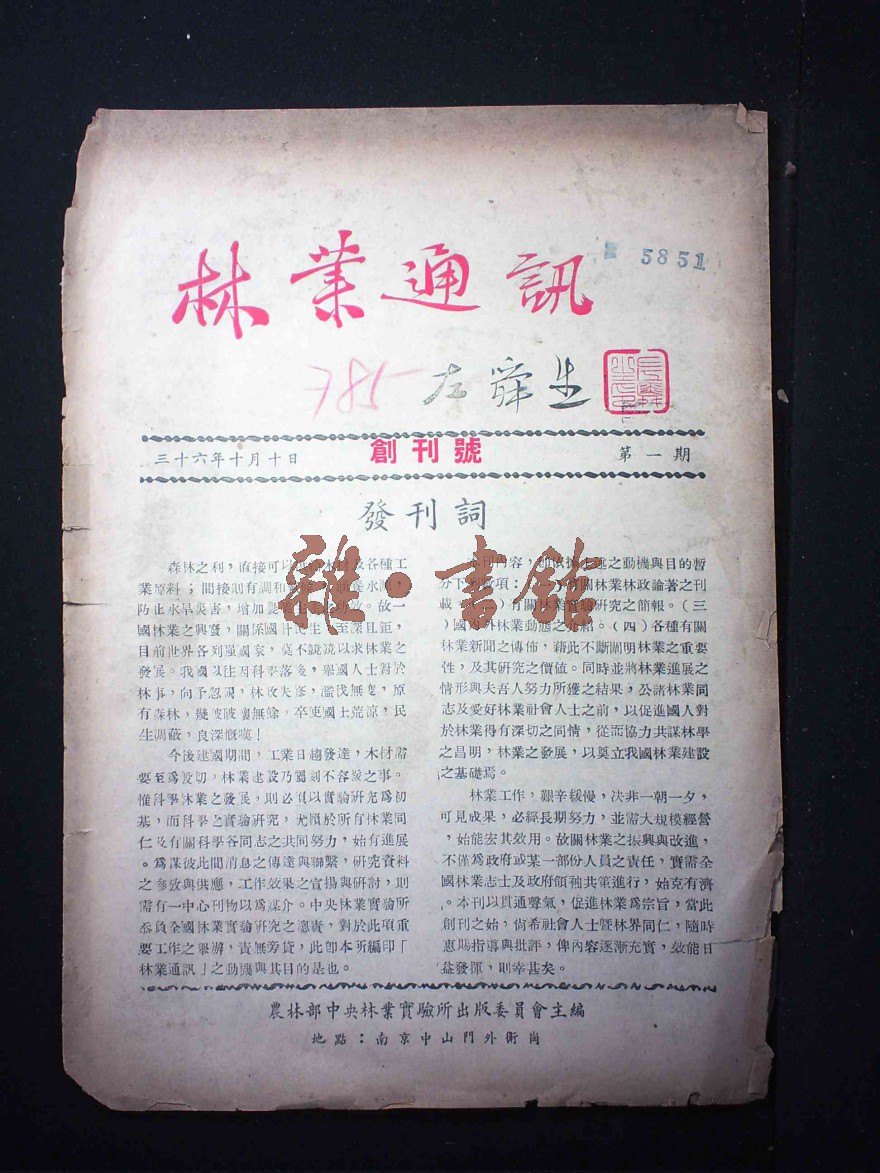 林業通訊
5851
785
左舜生
三十六年十月十日
創刊號
第一期
發刊詞
森林之利，直接可以供給木材及各種工
業原料；間接則有調和氣候，涵養水源，
防止水旱災害，增加農業生產之功效。故一
國林業之興衰，關係國計民生，至深且鉅，
目前世界各列強國家，莫不競競以求林業之
發展。我國以往因科學落後，舉國人士對於
林事，向予忽視，林政失修，濫伐無度，原
有森林，幾被破壞無餘，卒使國土荒涼，民
生凋蔽，良深慨嘆！
今後建國期間，工業日趨發達，木材需
要至為殷切，林業建設乃屬刻不容緩之事。
惟科學林業之發展，則必須以實驗研究為初
基，而科學之實驗研究，尤賴於所有林業同
仁及有關科學各同志之共同努力，始有進展
。為謀彼此間消息之傳達與聯繫，研究資料
之參攷與供應，工作效果之宣揚與研討，則
需有一中心刊物以為媒介。中央林業實驗所
忝負全國林業實驗研究之總責，對於此項重
要工作之舉辦，責無旁貸，此卽本所編印「
林業通訊」之動機與其目的是也。
本刊內容，卽依據上述之動機與目的暫
分下列四項：（一）有關林業林政論著之刊
載。（二）有關林業實驗研究之簡報。（三
）國內外林業動態之介紹。（四）各種有關
林業新聞之傳佈，藉此不斷闡明林業之重要
性，及其研究之價值。同時並將林業進展之
情形與夫吾人努力所獲之結果，公諸林業同
志及愛好林業社會人士之前，以促進國人對
於林業得有深切之同情，從而協力共謀林學
之昌明，林業之發展，以奠立我國林業建設
之基礎焉。
林業工作，艱辛緩慢，決非一朝一夕，
可見成果，必經長期努力，並需大規模經營
，始能宏其效用。故關林業之振興與改進，
不僅為政府或某一部份人員之責任，實需全
國林業志士及政府領袖共策進行，始克有濟
。本刊以貫通聲氣，促進林業為宗旨，當此
創刊之始，尙希社會人士暨林界同仁，隨時
惠賜指導與批評，俾內容逐漸充實，效能日
益發揮，則幸甚矣。
雜·書館
農林部中央林業實驗所出版委員會主編
地點：南京中山門外衛崗